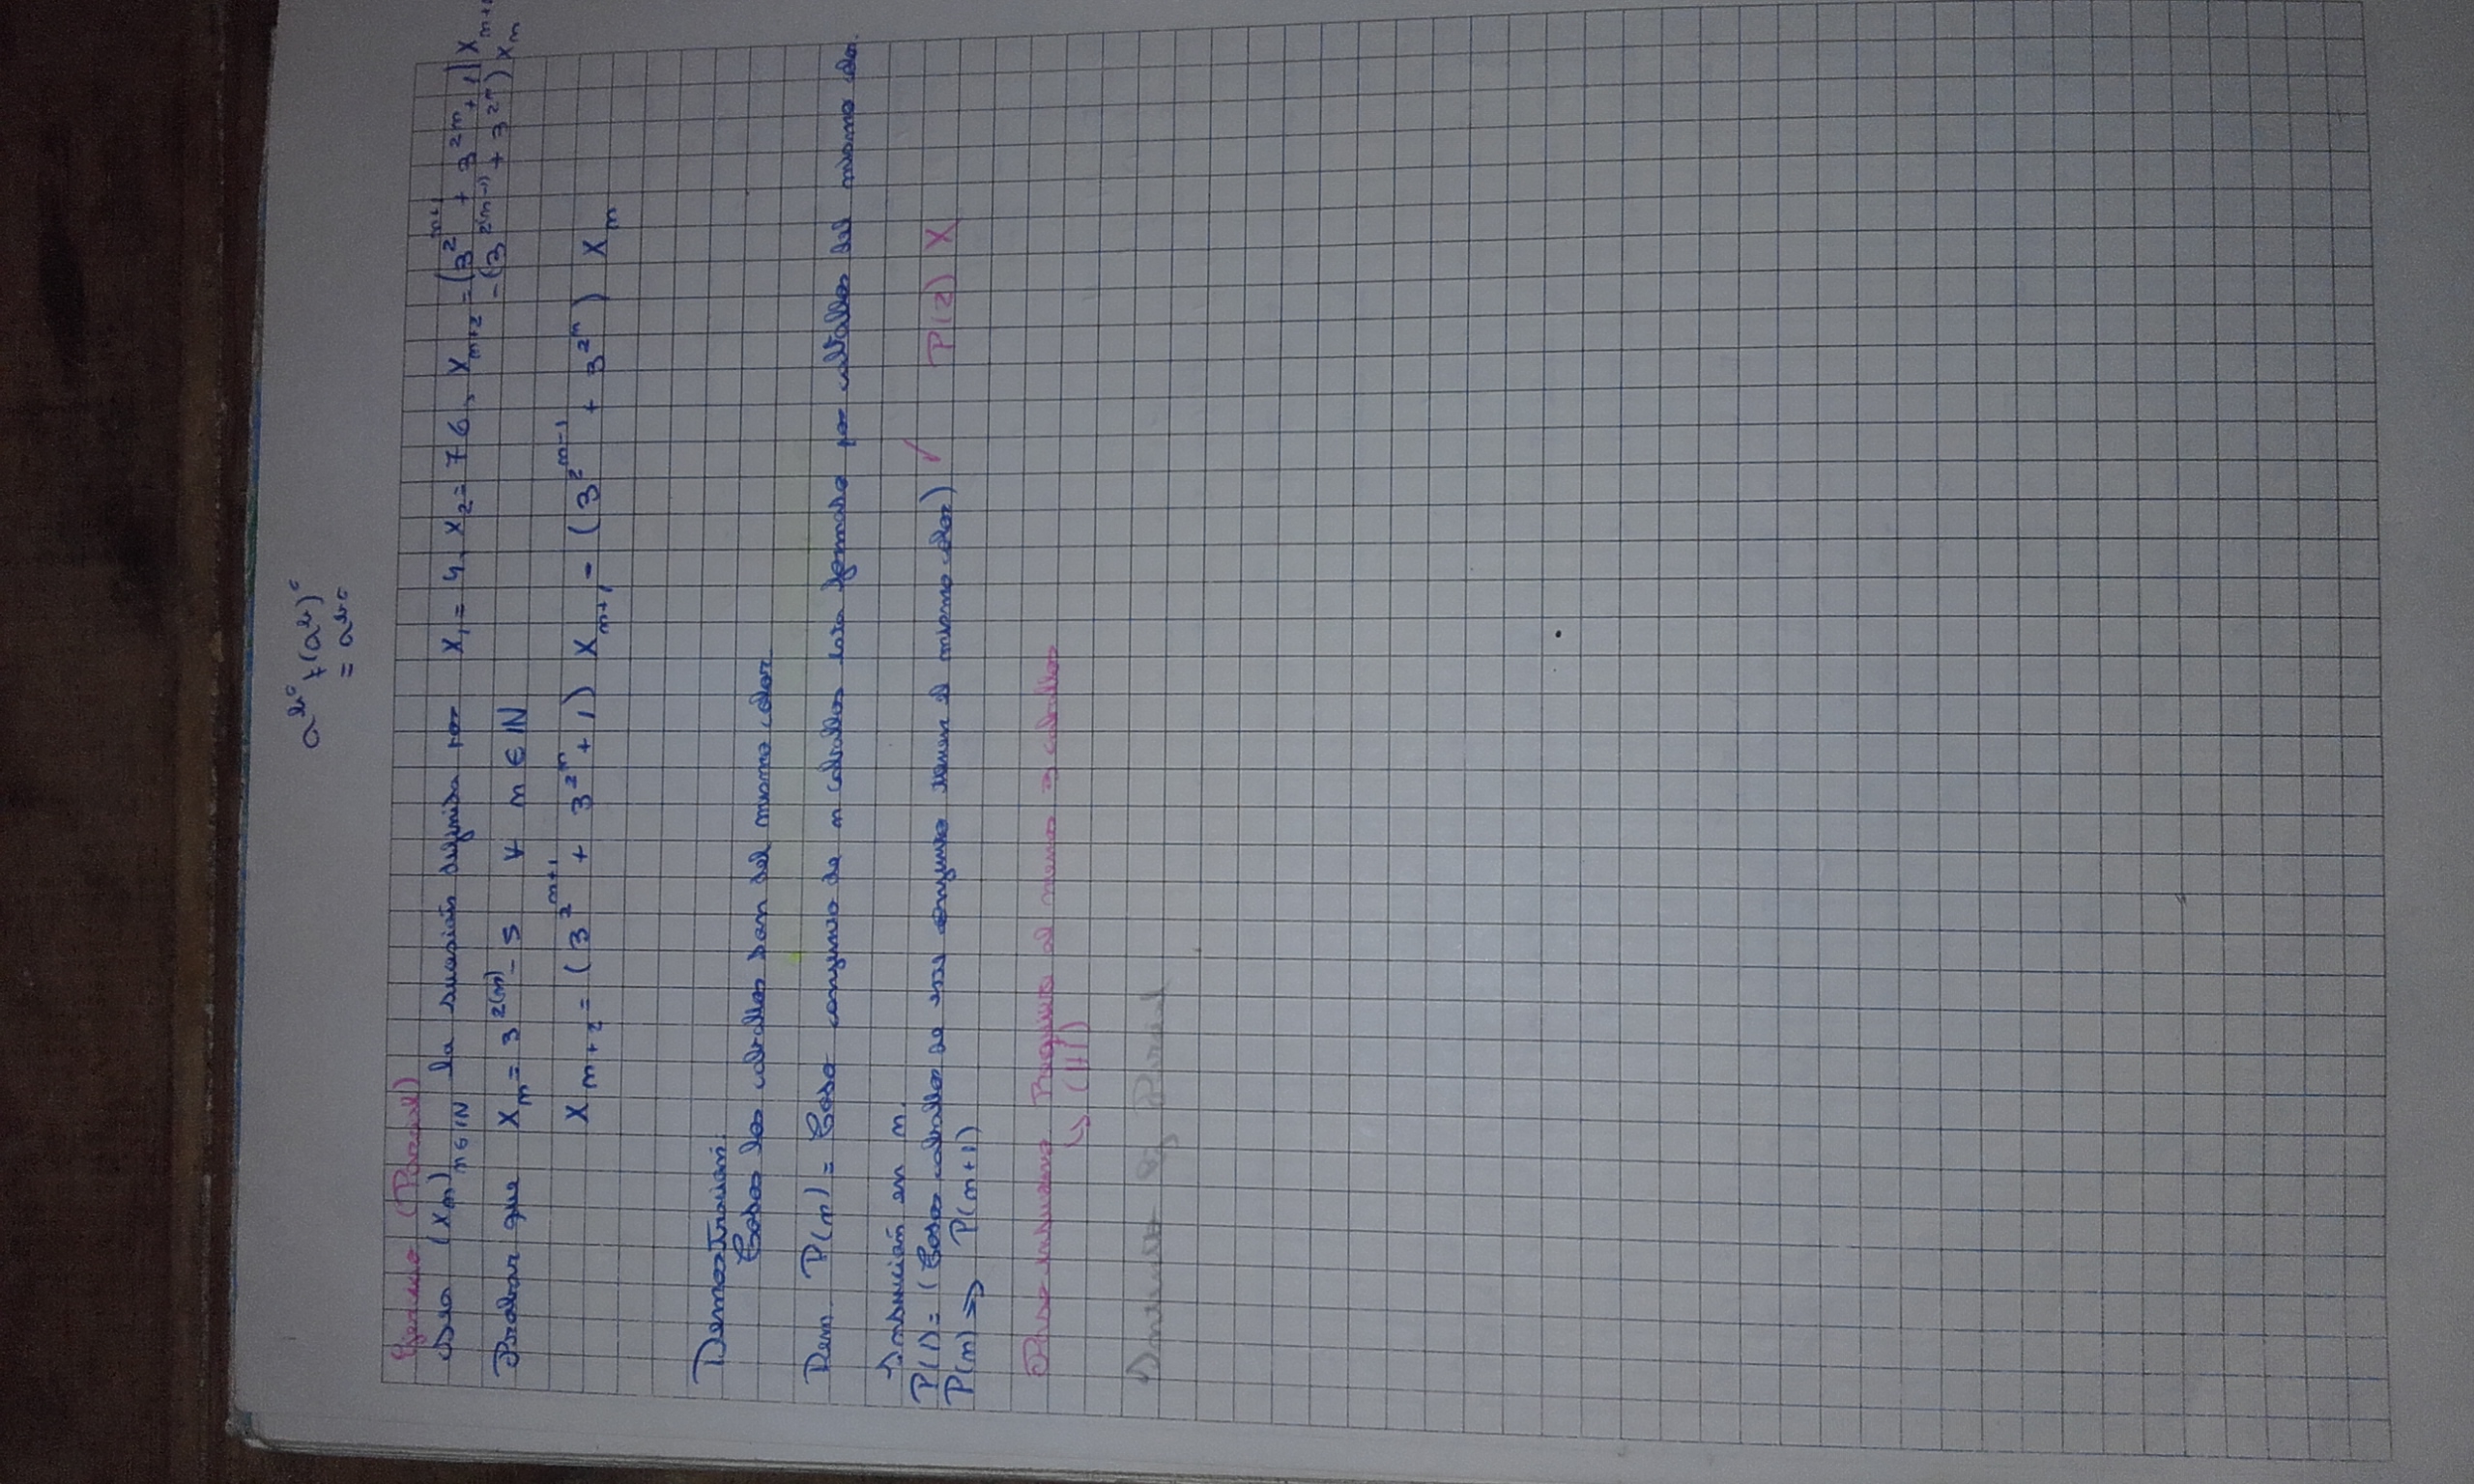 a^{b^c} ≠ (a^b)^c
= a^{bc}
Ejercicio (Parcial)
Sea (x_n)_{n∈ℕ} la sucesión definida por x_1 = 4, x_2 = 76, x_{n+2} = (3^{2^{n+1}} + 3^{2^n} + 1) x_{n+1}
- (3^{2^{(n-1)}} + 3^{2^n}) x_n
Probar que x_n = 3^{2^{(n)}} - 5 ∀ n ∈ ℕ
x_{n+2} = (3^{2^{n+1}} + 3^{2^n} + 1) x_{n+1} - (3^{2^{n-1}} + 3^{2^n}) x_n
Demostración
Todos los caballos son del mismo color
Dem P(n) = Todo conjunto de n caballos está formado por caballos del mismo color.
Inducción en n.
P(1) = (Todos caballos de ese conjunto tienen el mismo color) ✓ P(2) X
P(n) ⇒ P(n+1)
Paso inductivo Requiere al menos 3 caballos
↳ (HI)
Intento Ej Parcial